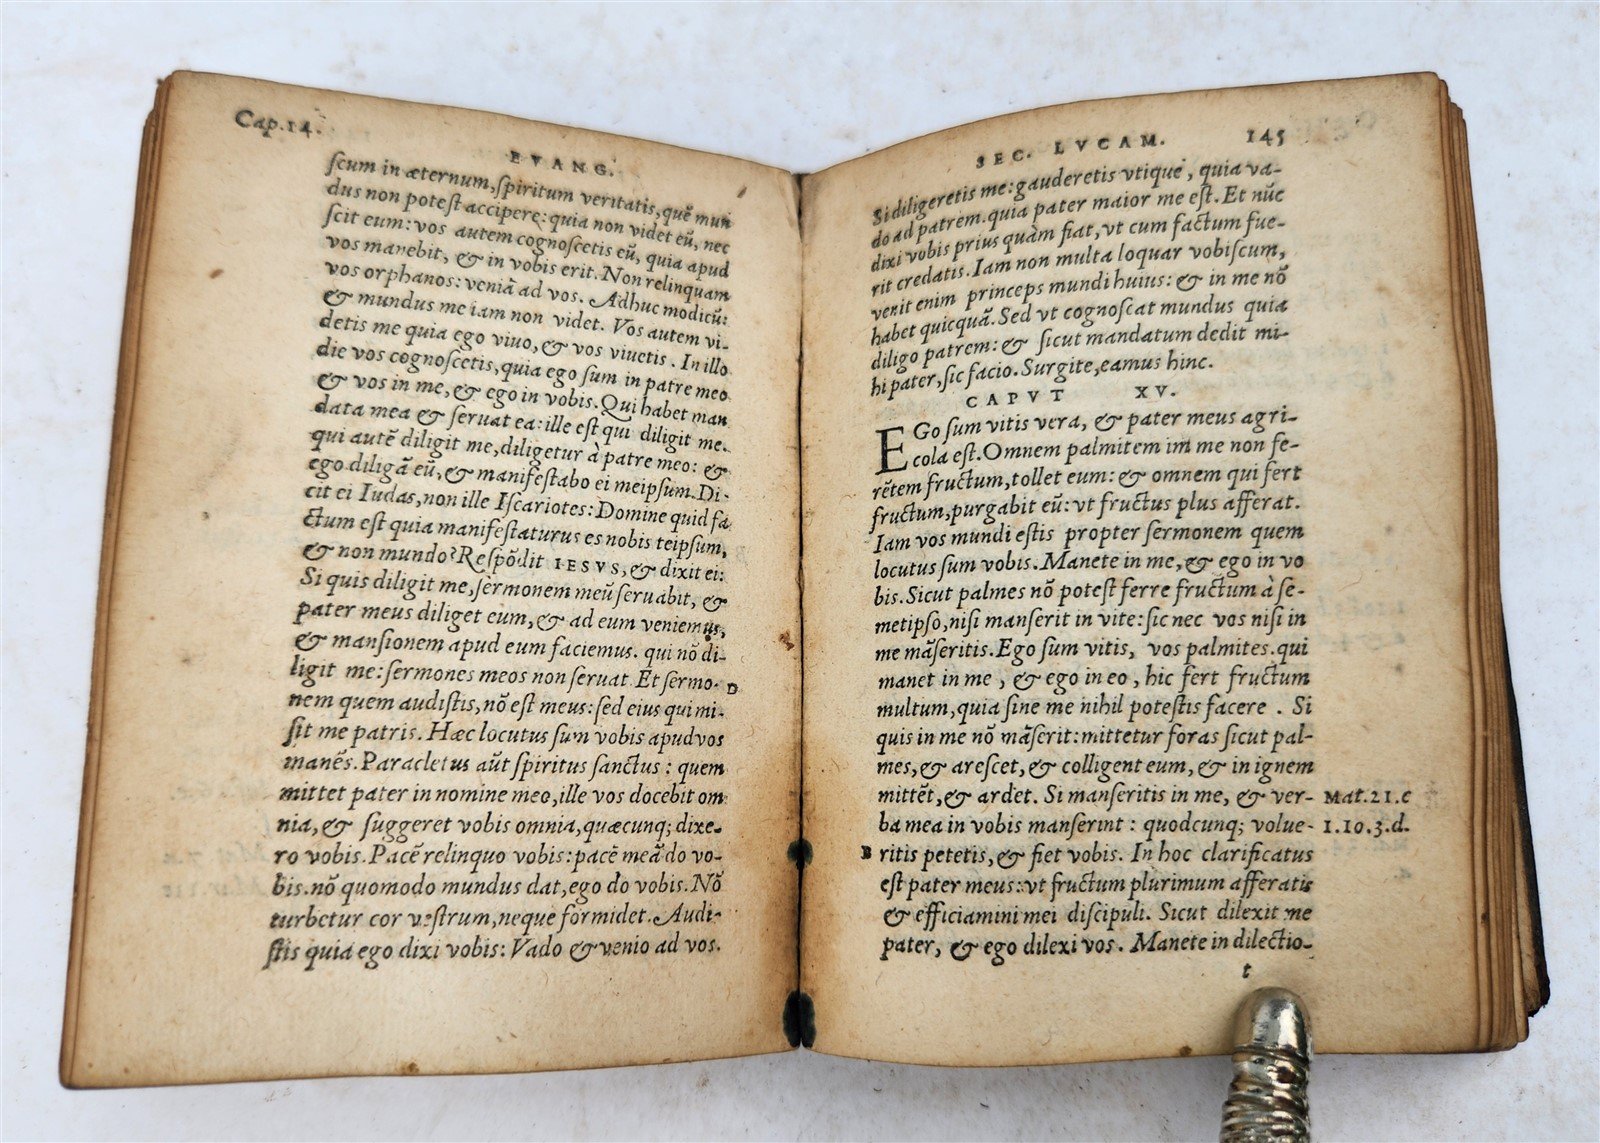 Cap.14.
EVANG.
ſcum in æternum, ſpiritum veritatis, quẽ mun
dus non poteſt accipere: quia non videt eũ, nec
ſcit eum: vos autem cognoſcetis eũ, quia apud
vos manebit, & in vobis erit. Non relinquam
vos orphanos: veniã ad vos. Adhuc modicũ:
& mundus me iam non videt. Vos autem vi-
detis me quia ego viuo, & vos viuetis. In illo
die vos cognoſcetis, quia ego ſum in patre meo
& vos in me, & ego in vobis. Qui habet man
data mea & ſeruat ea: ille eſt qui diligit me.
qui autẽ diligit me, diligetur à patre meo: &
ego diligã eũ, & manifeſtabo ei meipſum. Di-
cit ei Iudas, non ille Iſcariotes: Domine quid fa
ctum eſt quia manifeſtaturus es nobis teipſum,
& non mundo? Reſpõdit IESVS, & dixit ei:
Si quis diligit me, ſermonem meũ ſeruabit, &
pater meus diliget eum, & ad eum veniemus,
& manſionem apud eum faciemus. qui nõ di-
ligit me: ſermones meos non ſeruat. Et ſermo- D
nem quem audiſtis, nõ eſt meus: ſed eius qui mi-
ſit me patris. Hæc locutus ſum vobis apud vos
manẽs. Paracletus aũt ſpiritus ſanctus: quem
mittet pater in nomine meo, ille vos docebit om
nia, & ſuggeret vobis omnia, quæcunq; dixe-
ro vobis. Pacẽ relinquo vobis: pacẽ meã do vo-
bis. nõ quomodo mundus dat, ego do vobis. Nõ
turbetur cor veſtrum, neque formidet. Audi-
ſtis quia ego dixi vobis: Vado & venio ad vos.
SEC. LVCAM. 145
Si diligeretis me: gauderetis vtique, quia va-
do ad patrem. quia pater maior me eſt. Et nũc
dixi vobis prius quàm fiat, vt cum factum fue-
rit credatis. Iam non multa loquar vobiſcum,
venit enim princeps mundi huius: & in me nõ
habet quicquã. Sed vt cognoſcat mundus quia
diligo patrem: & ſicut mandatum dedit mi-
hi pater, ſic facio. Surgite, eamus hinc.
CAPVT XV.
EGo ſum vitis vera, & pater meus agri-
cola eſt. Omnem palmitem im me non fe-
rẽtem fructum, tollet eum: & omnem qui fert
fructum, purgabit eũ: vt fructus plus afferat.
Iam vos mundi eſtis propter ſermonem quem
locutus ſum vobis. Manete in me, & ego in vo
bis. Sicut palmes nõ poteſt ferre fructum à ſe-
metipſo, niſi manſerit in vite: ſic nec vos niſi in
me mãſeritis. Ego ſum vitis, vos palmites. qui
manet in me, & ego in eo, hic fert fructum
multum, quia ſine me nihil poteſtis facere. Si
quis in me nõ mãſerit: mittetur foras ſicut pal-
mes, & areſcet, & colligent eum, & in ignem
mittẽt, & ardet. Si manſeritis in me, & ver- Mat.21.c
ba mea in vobis manſerint: quodcunq; volue- 1.Io.3.d.
B ritis petetis, & fiet vobis. In hoc clarificatus
eſt pater meus: vt fructum plurimum afferatis
& efficiamini mei diſcipuli. Sicut dilexit me
pater, & ego dilexi vos. Manete in dilectio-
t